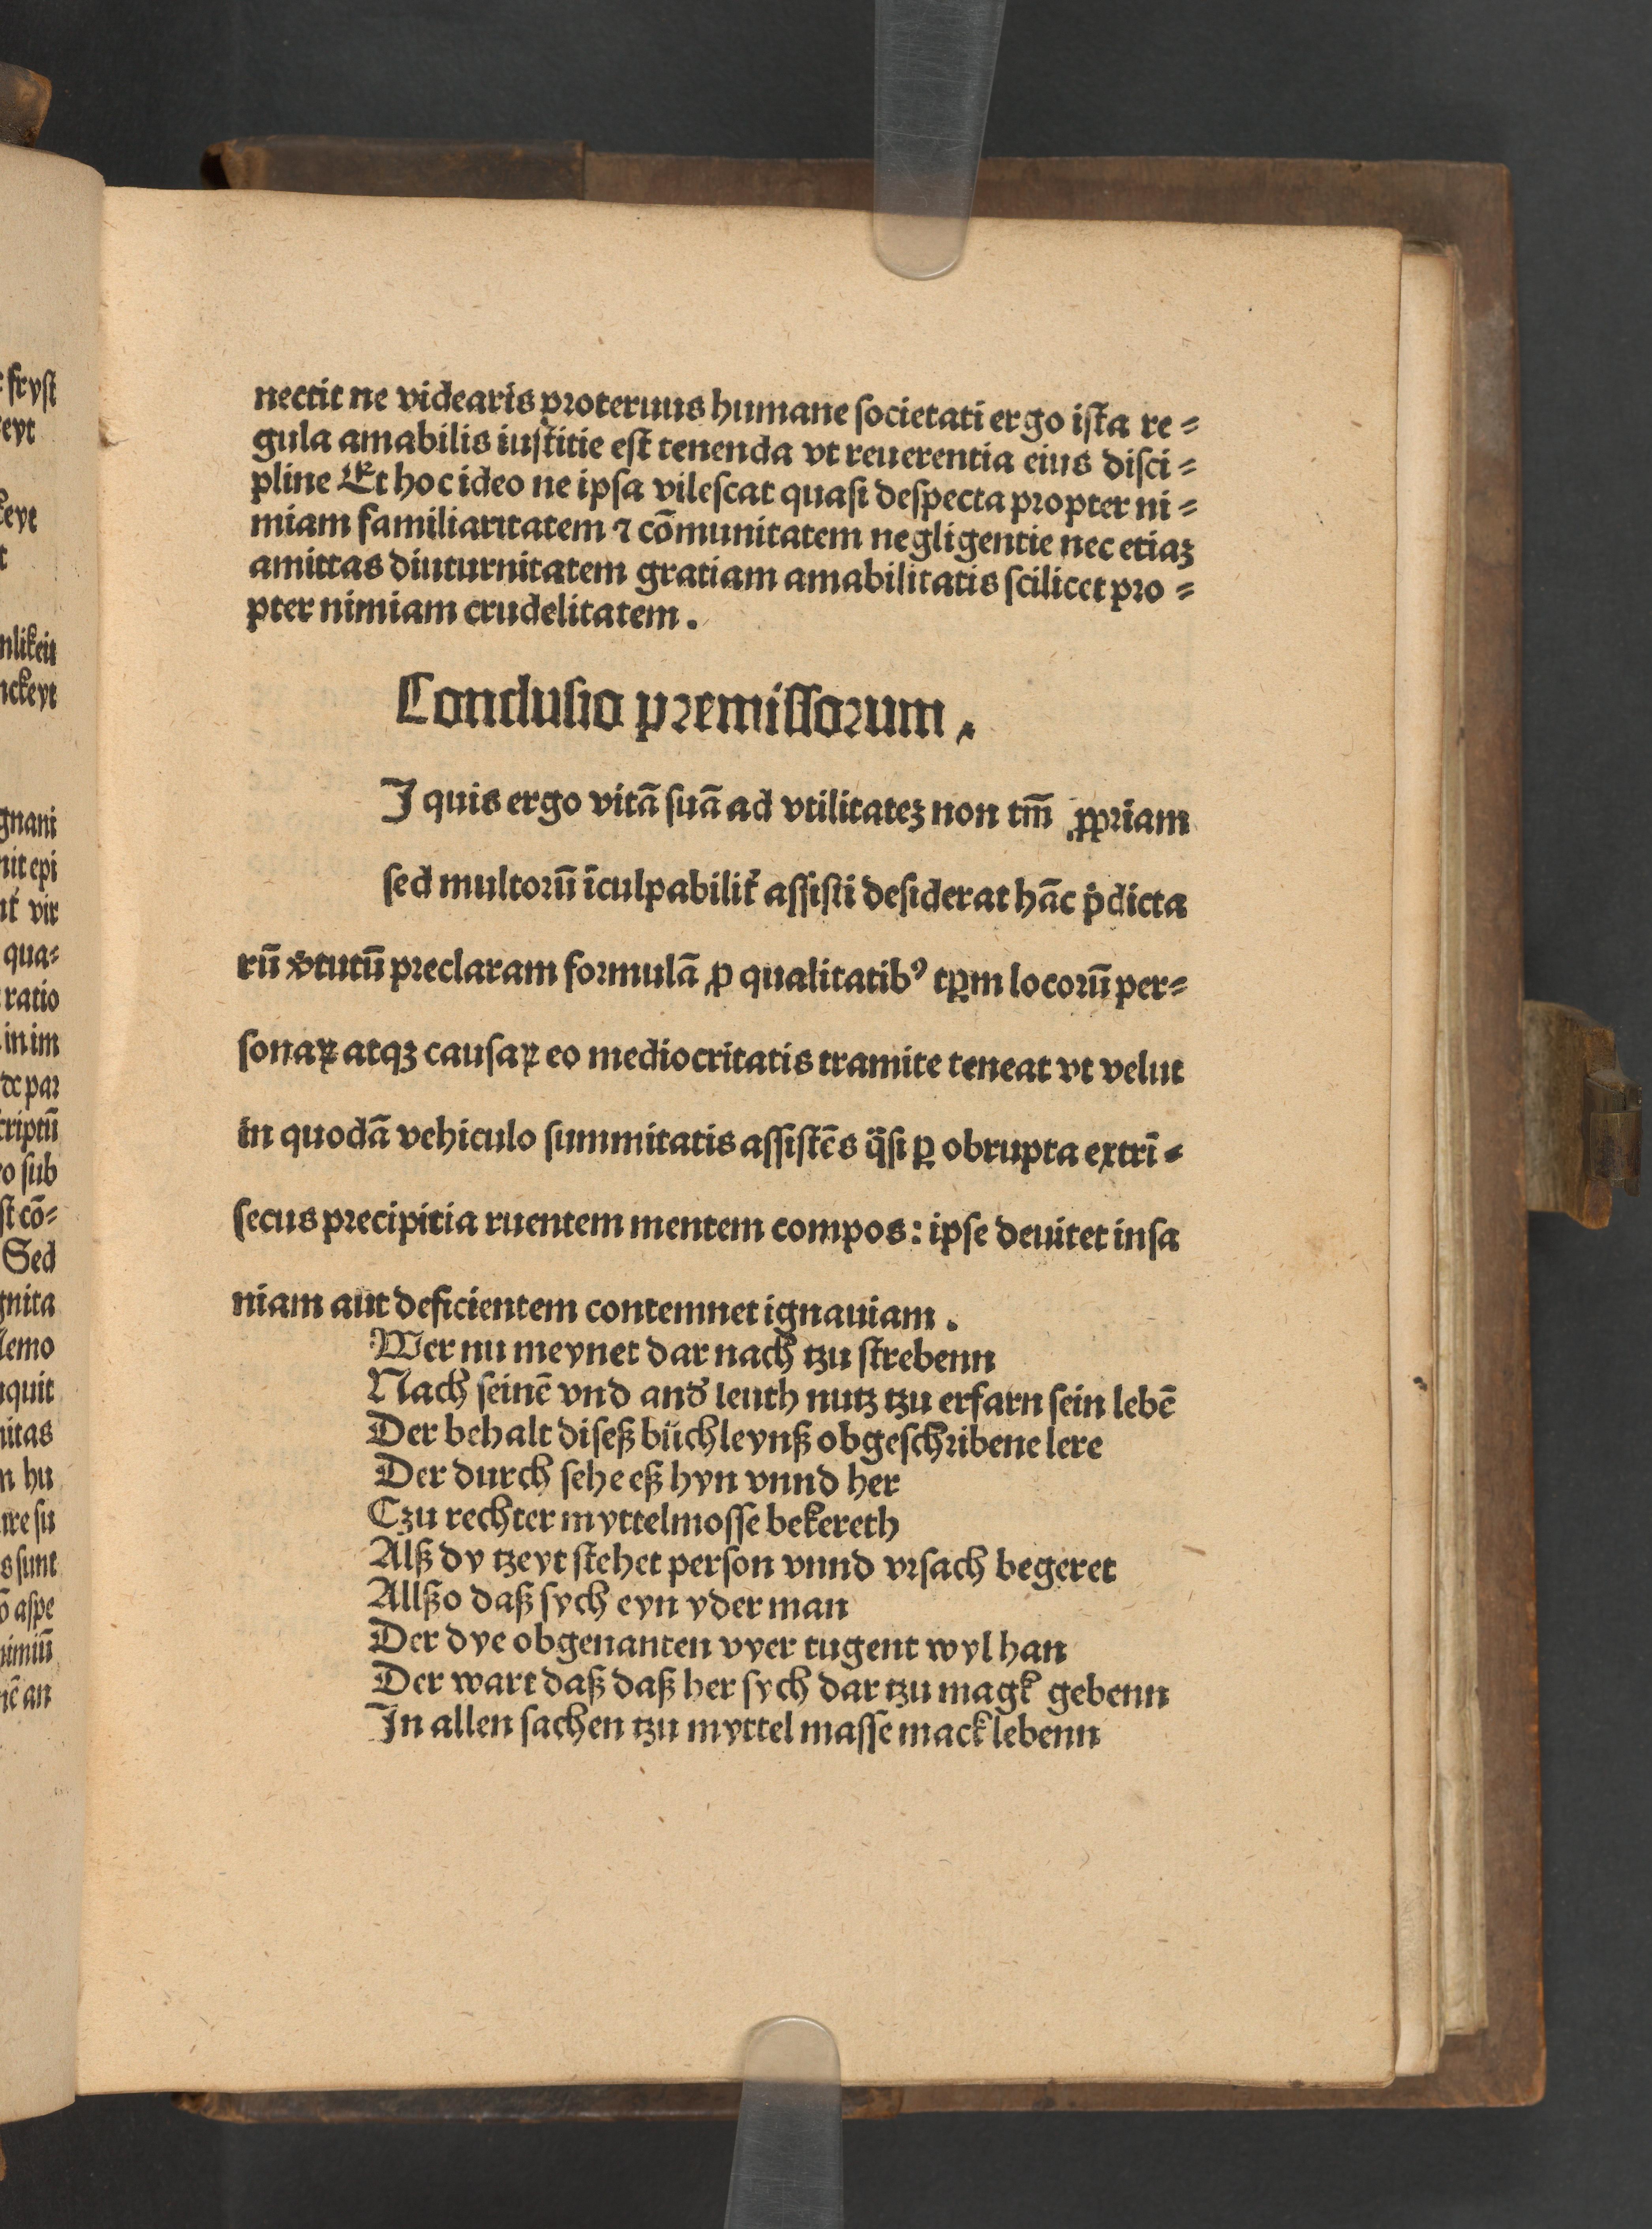 nectit ne videaris proteruus humane ſocietati ergo iſta re⸗
gula amabilis iuſtitie eſt tenenda vt reuerentia eius diſci⸗
pline Et hoc ideo ne ipſa vileſcat quaſi deſpecta propter ni⸗
miam familiaritatem ⁊ cōmunitatem negligentie nec etiaꝫ
amittas diuturnitatem gratiam amabilitatis ſcilicet pro⸗
pter nimiam crudelitatem.
Concluſio premiſſorum.
I quis ergo vitā ſuā ad vtilitateꝫ non tm̄ ꝓpriam
ſed multorū īculpabilit̓ aſſiſti deſiderat hāc p̄dicta
rū v̓tutū preclaram formulā ꝓ qualitatibꝰ tꝑm locorū per⸗
ſonaꝝ atqꝫ cauſaꝝ eo mediocritatis tramite teneat vt velut
in quodā vehiculo ſummitatis aſſiſtēs q̄ſi ꝑ obrupta extrī⸗
ſecus precipitia ruentem mentem compos: ipſe deuitet inſa
niam aut deficientem contemnet ignauiam.
Wer nu meynet dar nach tzu ſtrebenn
Nach ſeinē vnd and̓ leuth nutz tzu erfarn ſein lebē
Der behalt diſeß büchleynß obgeſchribene lere
Der durch ſehe eß hyn vnnd her
Czu rechter myttelmoſſe bekereth
Alß dy tzeyt ſtehet perſon vnnd vrſach begeret
Allßo daß ſych eyn yder man
Der dye obgenanten vyer tugent wyl han
Der wart daß daß her ſych dar tzu magk gebenn
In allen ſachen tzu myttel maſſe mack lebenn